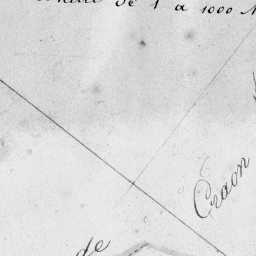 de 1 à 1000
Craon
de